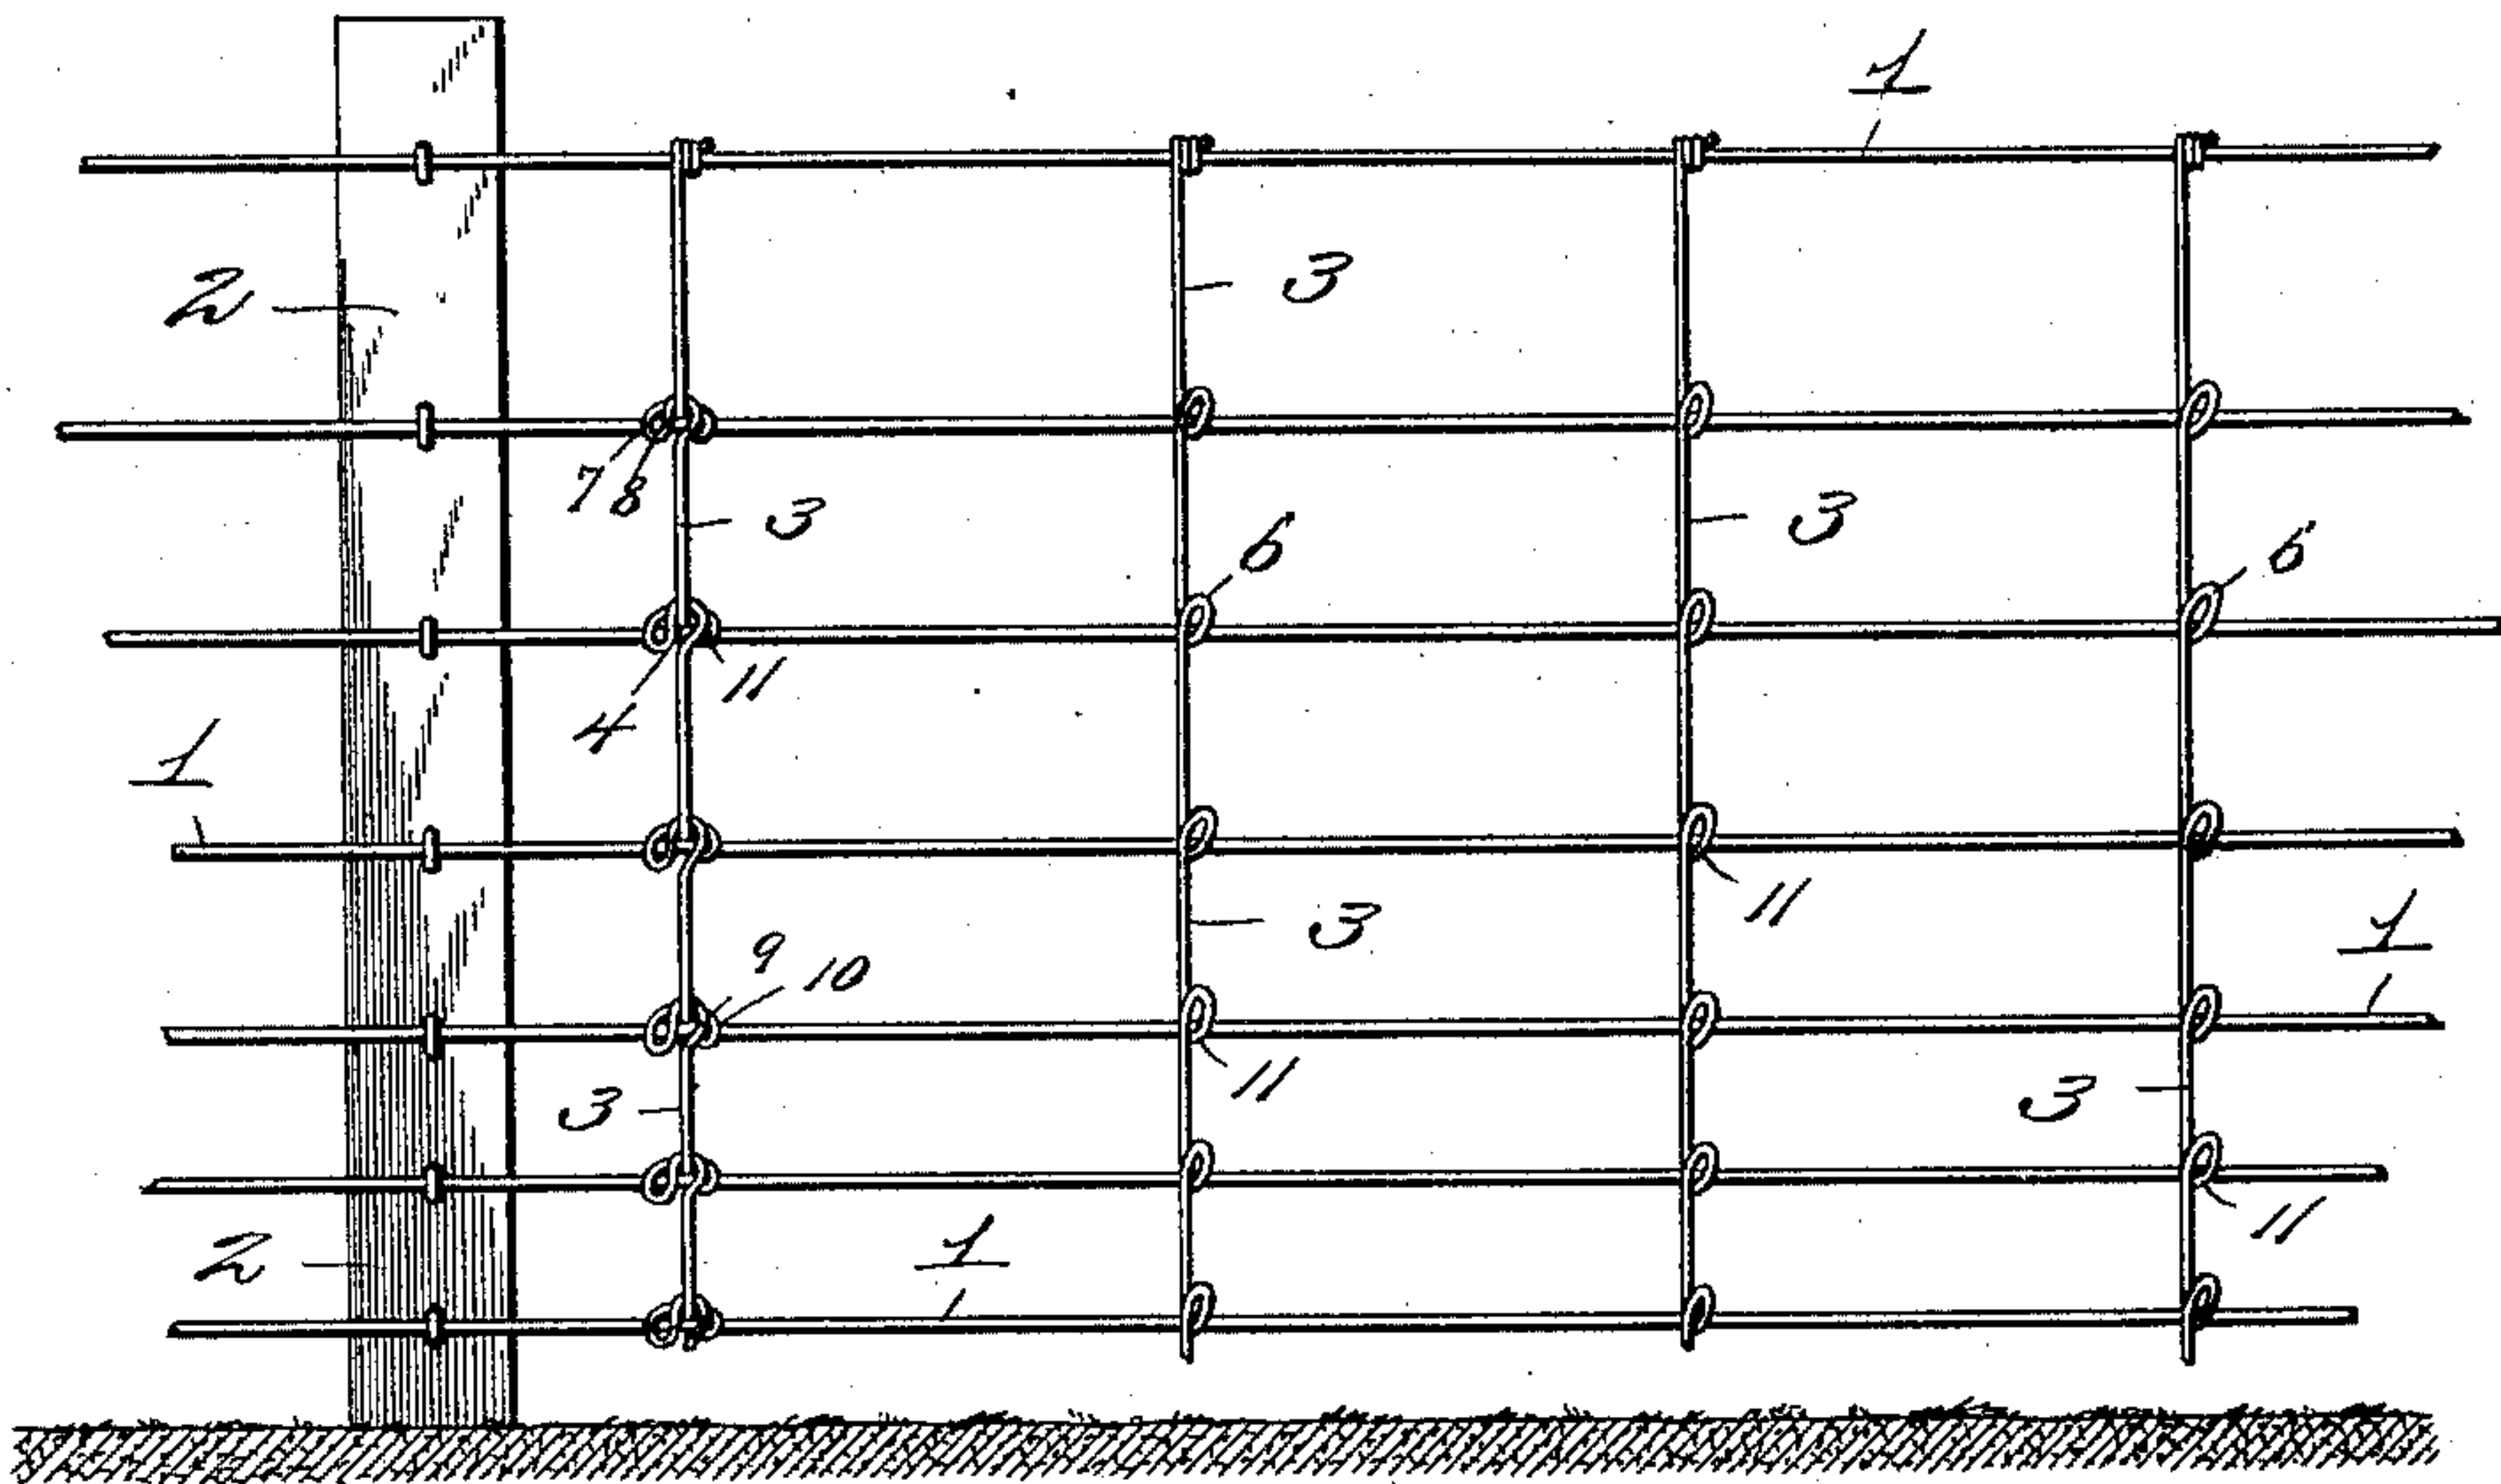 1
2
3
7 8
3
3
6
6
4
11
1
11
3
1
9 10
11
3
3
11
2
1